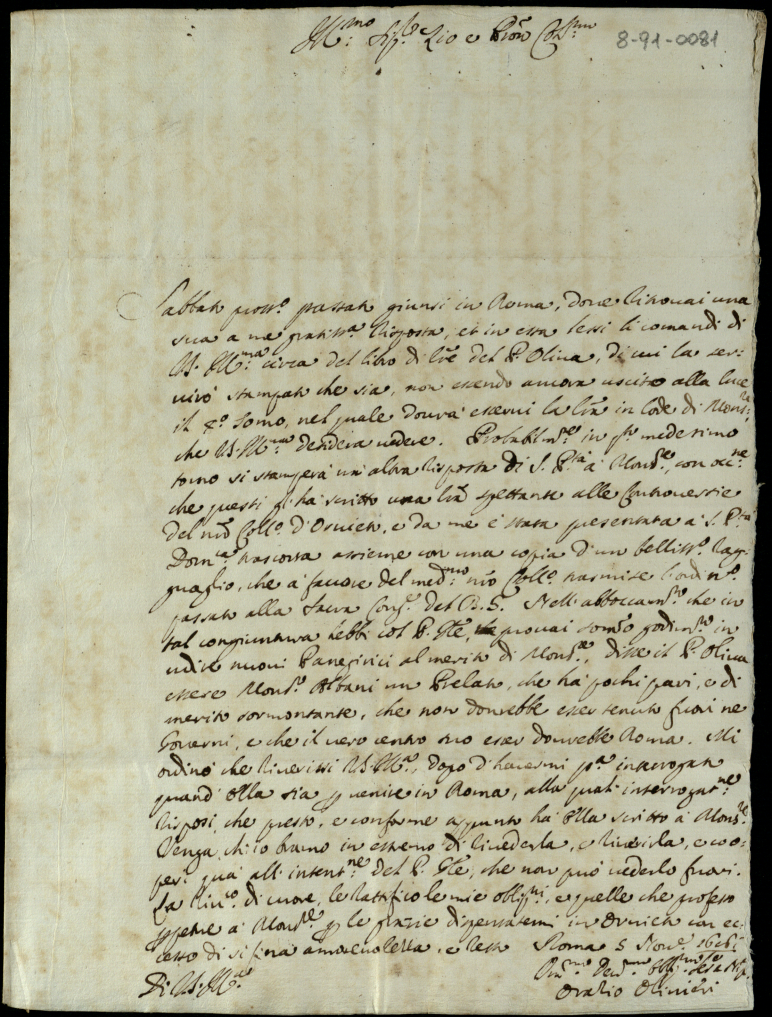 Ill.mo Sig.r Zio e Pron Col.mo
8-91-0081
Sabbato pross.o passato giunsi in Roma, dove ritrovai una
sua a me gratiss.a risposta, et in essa lessi li comandi di
V.S. Ill.ma circa del libro di lre del P. Oliva, di cui la ser-
virò stampato che sia, non essendo ancora uscito alla luce
il 2.o Tomo, nel quale dovrà esservi la lra in lode di Mons.re
che V.S. Ill.ma desidera vedere. Probabilm.te in q.sto medesimo
tomo si stamperà un altra risposta di S. P.tà a Mons.re, con occ.ne
che questi gl'ha scritto una lra spettante alle Controversie
del nro Coll.o d'Orvieto, e da me è stata presentata a S. P.tà
Dom.ca trascorsa assieme con una copia d'un belliss.o rag-
guaglio, che a favore del med.mo nro Coll.o trasmise l'ordin.o
passato alla Sacra Cong. del B.G. Nell'abboccam.to che in
tal congiuntura hebbi col P. Gle, provai sommo godim.to in
udire nuovi Panegirici al merito di Mons.re, disse il P. Oliva
essere Mons.re Albani un Prelato, che ha pochi pari, e di
merito sormontante, che non dovrebbe esser tenuto fuori ne
Governi, e che il vero centro suo esser dovrebbe Roma. Mi
ordinò che riverissi V.S. Ill.ma, dopo d'havermi p.a interrogato
quand'Ella sia p venire in Roma, alla quali interrogat.ne
risposi, che presto, e conforme appunto ha Ella scritto a Mons.re
Venga, ch'io bramo in estremo di rivederla, e riverirla, e coo-
peri quà all'intent.ne del P. Gle, che non può vederlo fuori.
La riv.o di cuore, le rattifico le mie oblig.ni, e quelle che professo
p sempre a Mons.re p le grazie dispensatemi in Orvieto con ec-
cesso di sì fina amorevolezza, e resto Roma 5 Nov.e
Di V.S. Ill.ma
Dev.mo Obl.mo Ser.e Nip.
Oratio Olivieri